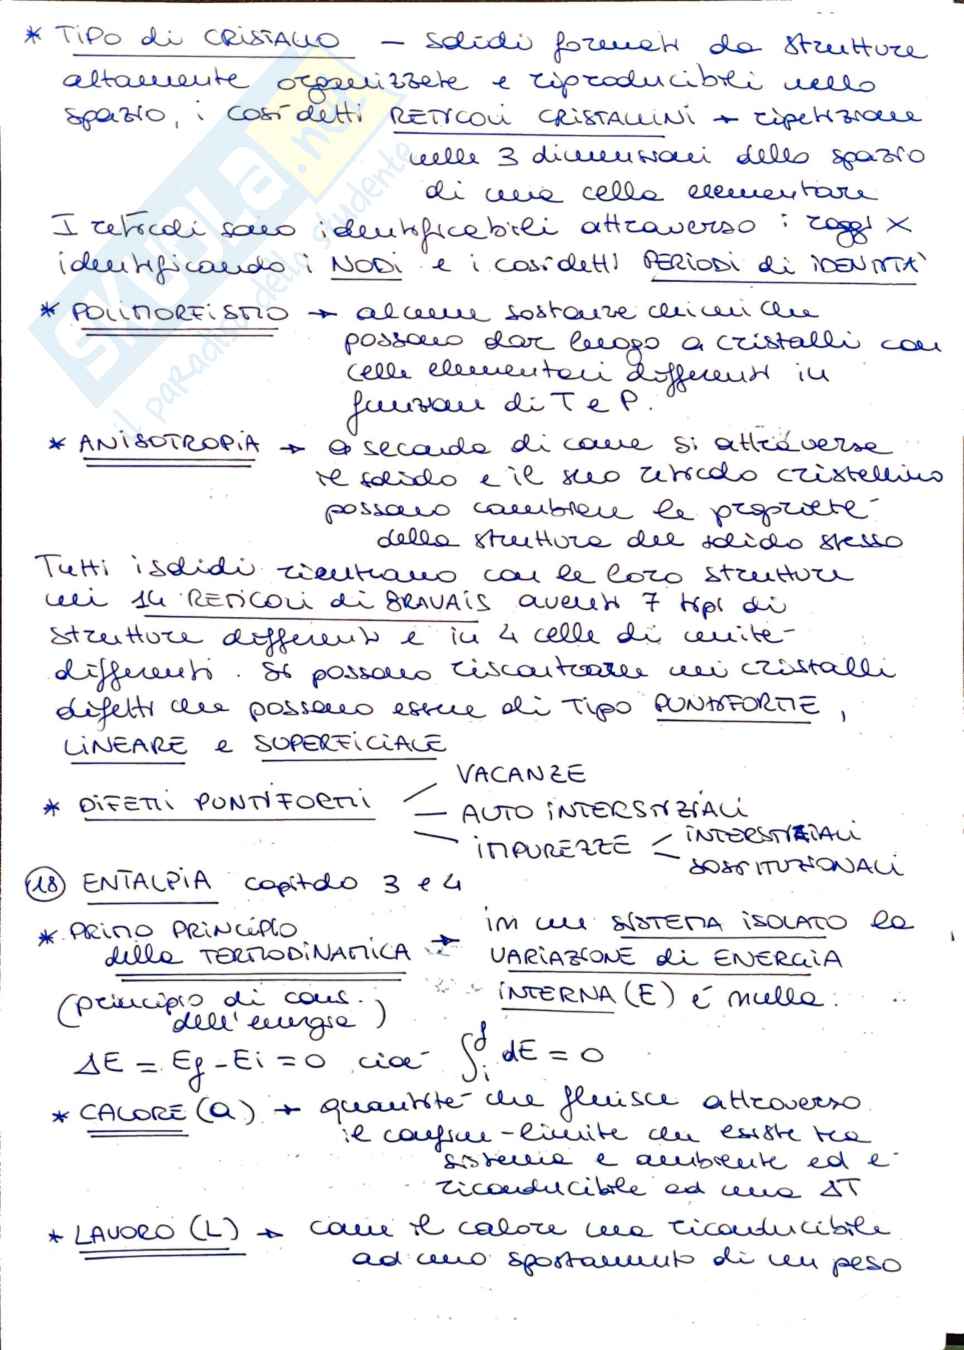 * TIPO di CRISTALLO — solidi formati da strutture
altamente organizzate e riproducibili nello
spazio, i cosidetti RETICOLI CRISTALLINI → ripetizione
nelle 3 dimensioni dello spazio
di una cella elementare
I reticoli sono identificabili attraverso i raggi X
identificando i NODI e i cosidetti PERIODI di iDENTITA'
* POLIMORFISMO → alcune sostanze chimiche
possono dar luogo a cristalli con
celle elementari differenti in
funzione di T e P.
* ANISOTROPIA → a seconda di come si attraversa
il solido e il suo reticolo cristallino
possono cambiare le proprietà
della struttura del solido stesso
Tutti i solidi rientrano con le loro strutture
nei 14 RETICOLI di BRAVAIS aventi 7 tipi di
strutture differenti e in 4 celle di unità
differenti. Si possono riscontrare nei cristalli
difetti che possono essere di tipo PUNTIFORME,
LINEARE e SUPERFICIALE
VACANZE
* DIFETTI PUNTIFORMI — AUTO INTERSTIZIALI
IMPUREZZE INTERSTIZIALI
SOSTITUZIONALI
18 ENTALPIA capitolo 3 e 4
* PRIMO PRINCIPIO → in un SISTEMA ISOLATO la
della TERMODINAMICA VARIAZIONE di ENERGIA
(principio di cons. INTERNA (E) è nulla.
dell'energia)
ΔE = Ef - Ei = 0 cioè ∫if dE = 0
* CALORE (Q) → quantità che fluisce attraverso
il confine-limite che esiste tra
sistema e ambiente ed è
riconducibile ad una ΔT
* LAVORO (L) → come il calore ma riconducibile
ad uno spostamento di un peso
SKUOLA.net
il paradiso dello studente